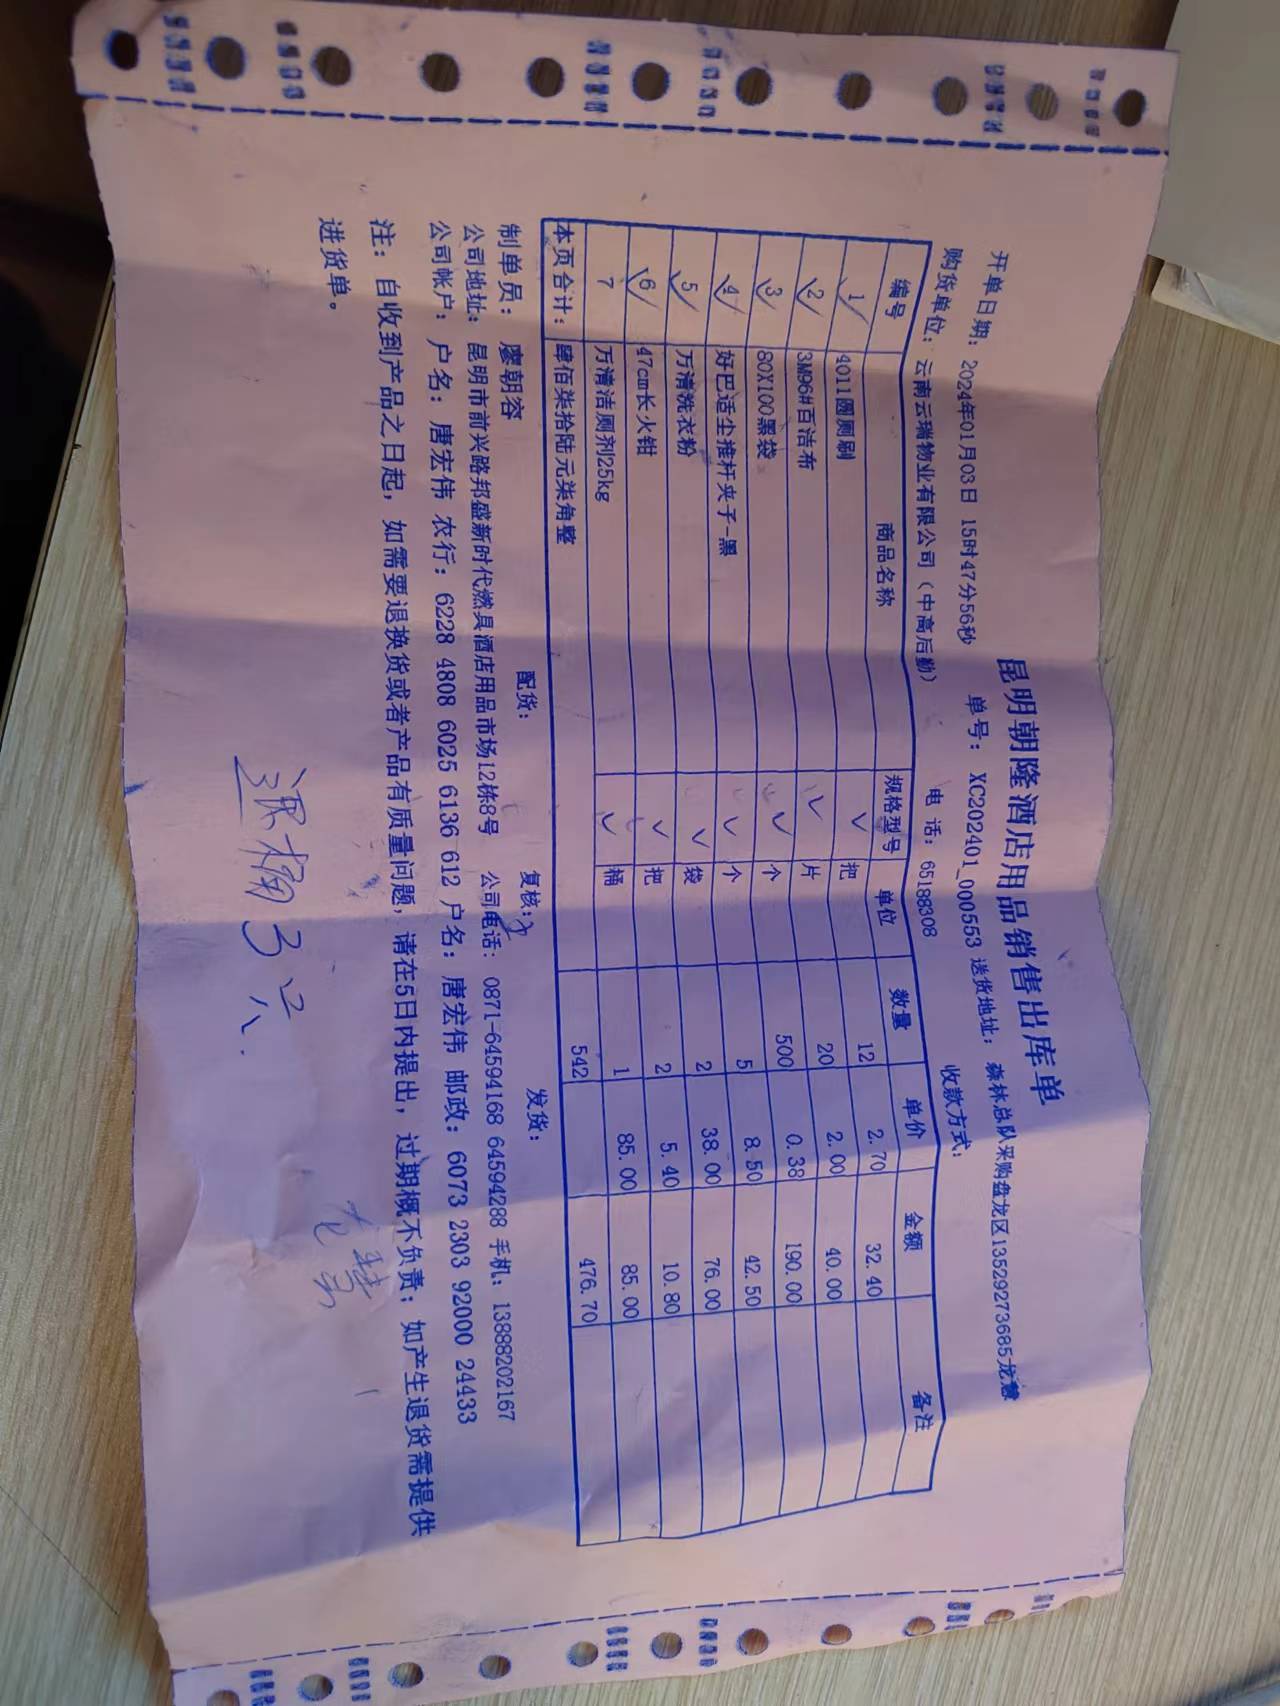 昆明朝隆酒店用品销售出库单
开单日期: 2024年01月03日 15时47分56秒 单号: XC202401_000553 送货地址: 森林总队采购盘龙区13529273685龙慧
购货单位: 云南云瑞物业有限公司（中高后勤） 电 话: 65188308 收款方式:
编号 商品名称 规格型号 单位 数量 单价 金额 备注
1 4011圆厕刷 把 12 2.70 32.40
2 3M96#百洁布 片 20 2.00 40.00
3 80X100黑袋 个 500 0.38 190.00
4 好巴适尘推杆夹子-黑 个 5 8.50 42.50
5 万清洗衣粉 袋 2 38.00 76.00
6 47cm长火钳 把 2 5.40 10.80
7 万清洁厕剂25kg 桶 1 85.00 85.00
本页合计: 肆佰柒拾陆元柒角整 542 476.70
制单员: 廖朝容 配货: 复核: 发货:
公司地址: 昆明市前兴路邦盛新时代燃具酒店用品市场12栋8号 公司电话: 0871-64594168 64594288 手机: 13888202167
公司帐户: 户名: 唐宏伟 农行: 6228 4808 6025 6136 612 户名: 唐宏伟 邮政: 6073 2303 92000 24433
注: 自收到产品之日起, 如需要退换货或者产品有质量问题, 请在5日内提出, 过期概不负责; 如产生退货需提供
进货单。